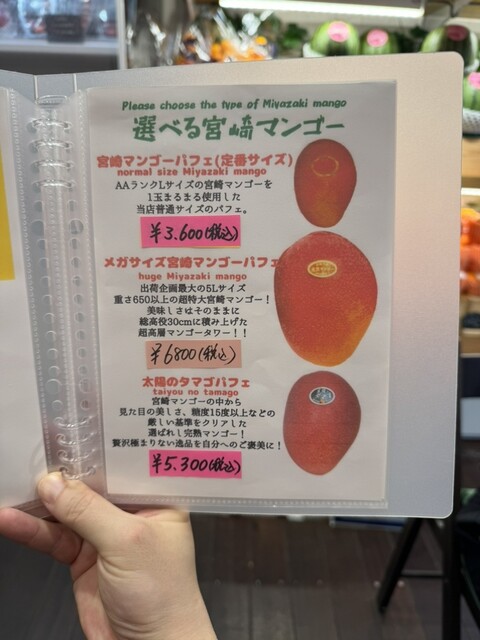 Please choose the type of Miyazaki mango
選べる宮崎マンゴー
宮崎マンゴーパフェ(定番サイズ)
normal size Miyazaki mango
AAランクLサイズの宮崎マンゴーを
1玉まるまる使用した
当店普通サイズのパフェ。
¥3.600(税込)
メガサイズ宮崎マンゴーパフェ
huge Miyazaki mango
出荷企画最大の5Lサイズ
重さ650以上の超特大宮崎マンゴー!
美味しさはそのままに
総高役30cmに積み上げた
超高層マンゴータワー!!
¥6800(税込)
太陽のタマゴパフェ
taiyou no tamago
宮崎マンゴーの中から
見た目の美しさ、糖度15度以上などの
厳しい基準をクリアした
選ばれし完熟マンゴー!
贅沢極まりない逸品を自分へのご褒美に!
¥5.300(税込)